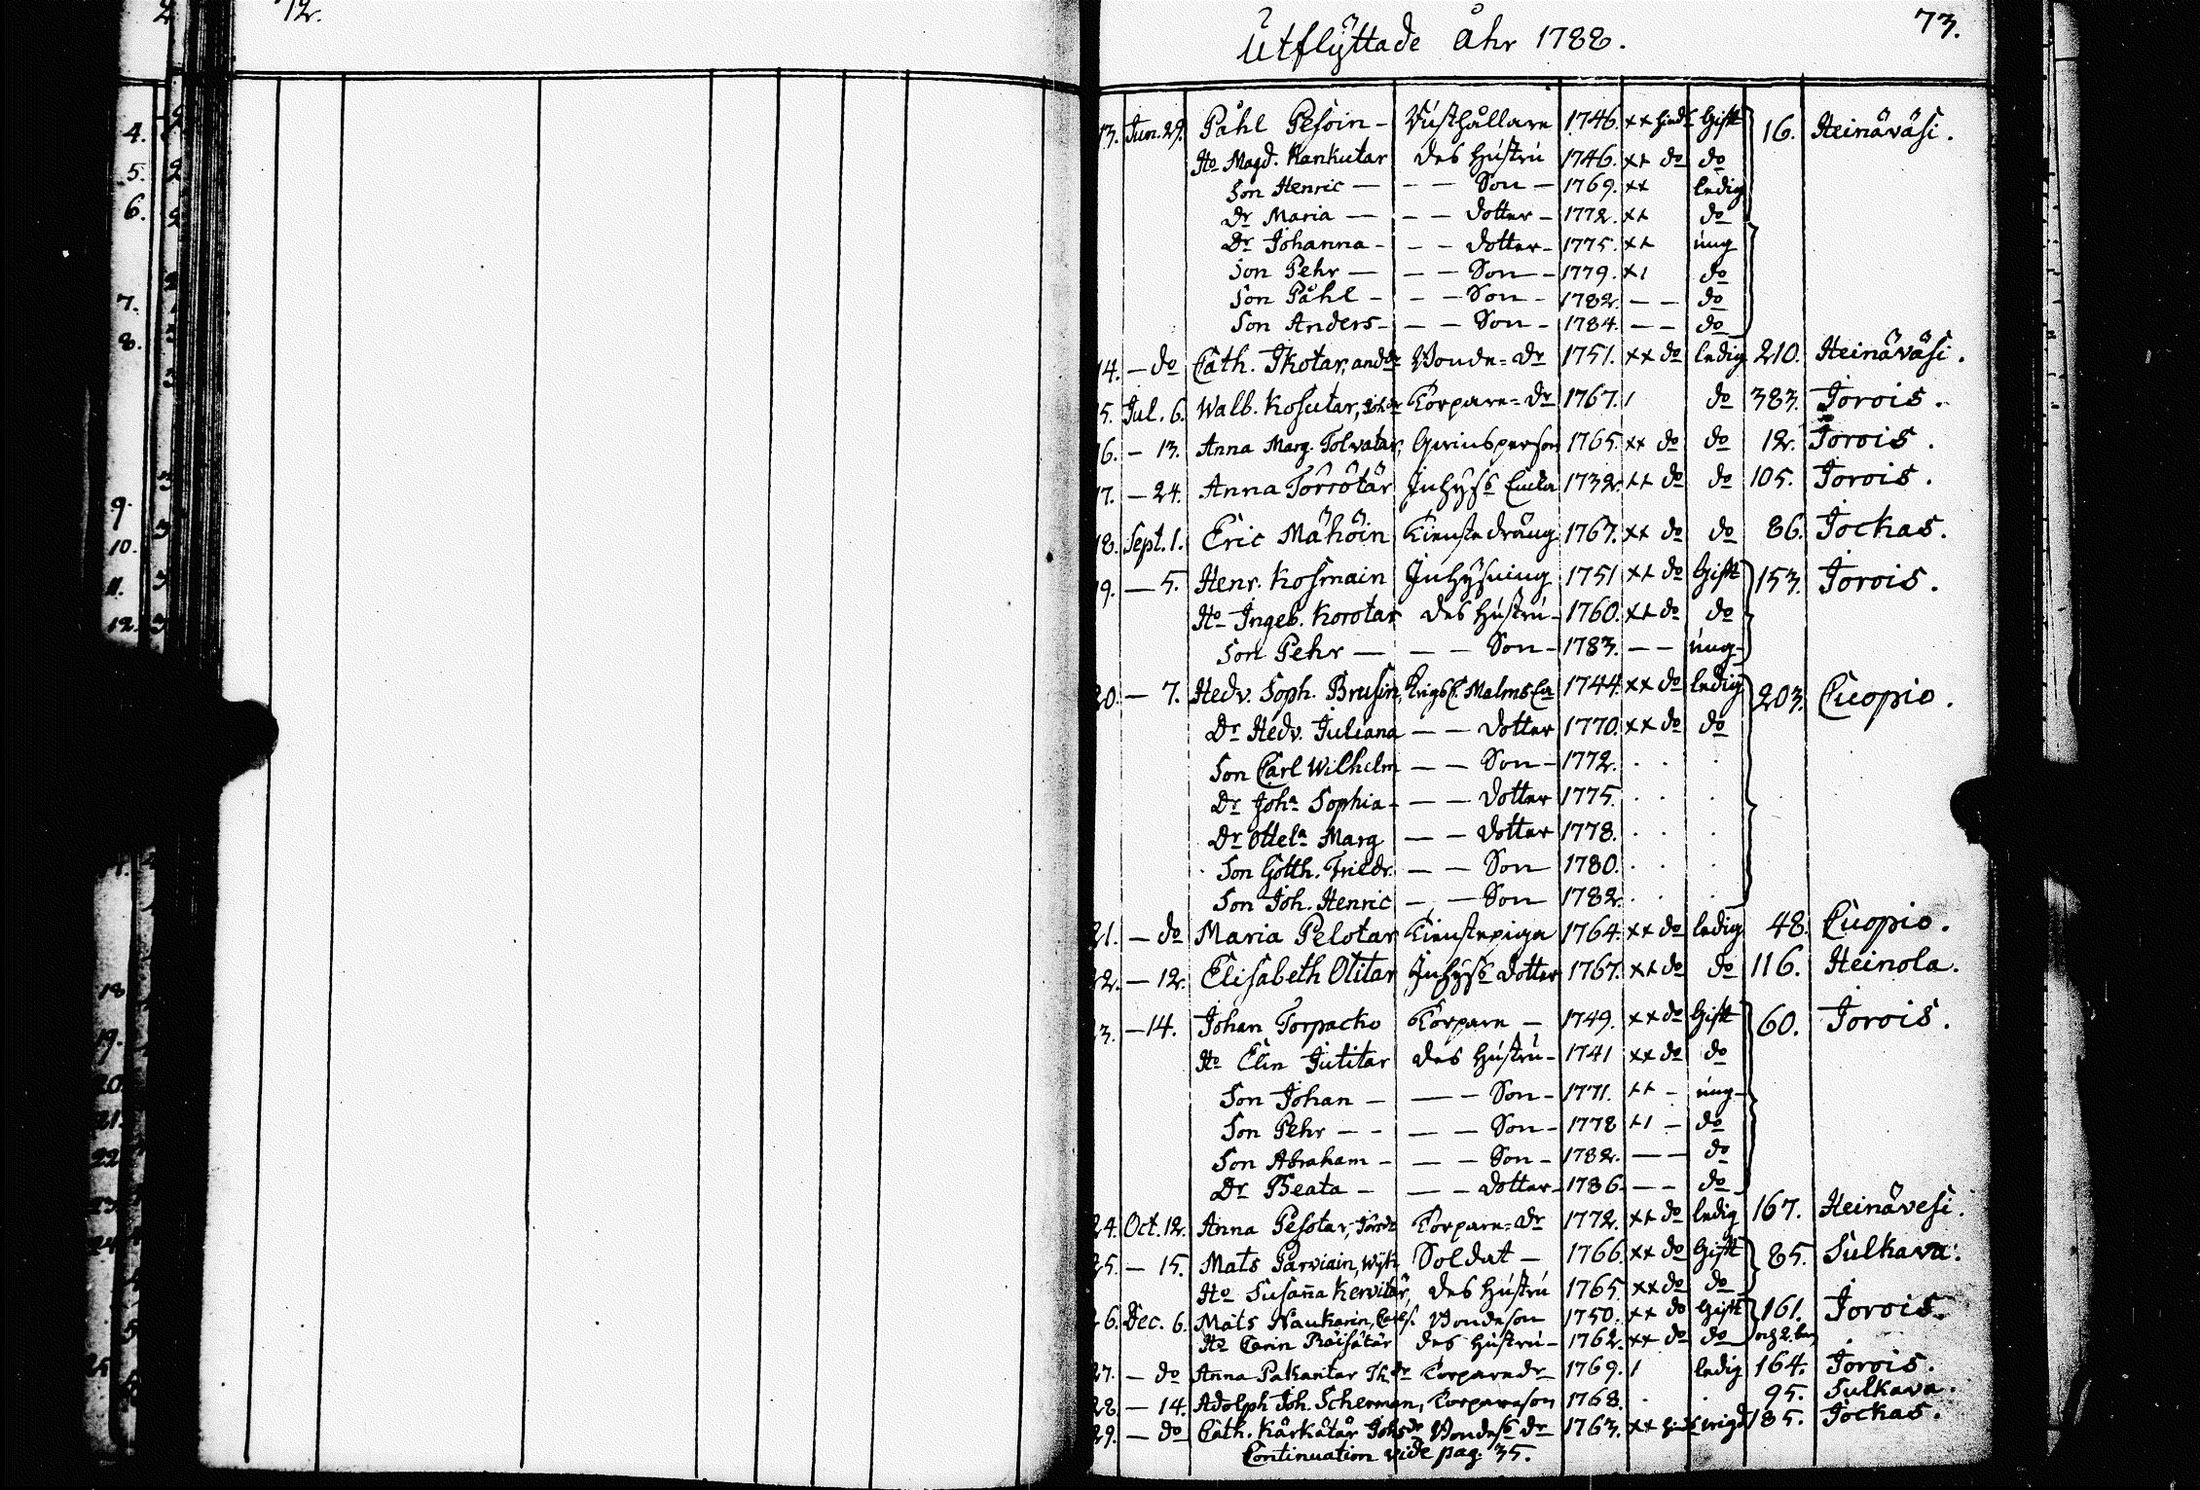 72.
Utflyttade åhr 1788.
73.
13. Jun. 29. Påhl Pesoin - Rusthållare 1746. ×× Gift 16. Heinäväsi.
Ho Magd. Kankutar des Hustru 1746. ×+ do do
Son Henric — - — Son — 1769. ×× ledig
Dr Maria — - — dotter - 1772. ×+ do
Dr Johanna - - — dotter - 1775. ×+ ung
Son Pehr — - — Son — 1779. ×1 do
Son Påhl - - — Son - 1782. — — do
Son Anders - - — Son - 1784. — — do
14. — do Cath. Ikotar, Bonde=dr 1751. ×× do ledig 210. Heinäväsi.
15. Jul. 6. Walb. Kosutar, Torpare=dr 1767. 1 do 383. Jorois.
16. — 13. Anna Marg. Tolvatar, 1765. ×× do do 12. Jorois.
17. — 24. Anna Torrötär Inhyss Enka 1732. ×+ do do 105. Jorois.
18. Sept. 1. Eric Mähöin Tienstedräng 1767. ×× do do 86. Jockas.
19. — 5. Henr. Kosmain Inhysning 1751 ×+ do Gift 153. Jorois.
Ho Ingeb. Korotar des Hustru - 1760. ×+ do do
Son Pehr — — — Son - 1783. — — ung -
20. — 7. Hedv. Soph. Brusin, 1744. ×× do ledig 203. Cuopio.
Dr Hedv. Juliana — — dotter 1770. ×× do do
Son Carl Wilhelm — — Son - 1772. . . .
Dr Joha Sophia - — — dotter 1775. . . .
Dr Ottela Marg — — dotter 1778. . . .
Son Gotth. Friedr. — — Son 1780. . .
Son Joh. Henric — — Son 1782. . .
21. — do Maria Pelotar Tienstepiga 1764. ×× do ledig 48. Cuopio.
22. — 12. Elisabeth Otitar Inhyss dotter 1767. ×+ do do 116. Heinola.
23. — 14. Johan Torpacko Torpare — 1749. ×× do Gift 60. Jorois.
Ho Elin Jutitar des Hustru - 1741 ×× do do
Son Johan - — — Son - 1771. ++ - ung -
Son Pehr — - — — Son - 1778 +1 — do
Son Abraham - — — Son - 1782. — — do
Dr Beata - — — dotter - 1786. — — do
24. Oct. 12. Anna Pesotar, Torpare=dr 1772. ×+ do ledig 167. Heinävesi.
25. — 15. Mats Parviain, Soldat — 1766. ×× do Gift 85. Sulkava.
Ho Susaña Kervitär, des Hustru 1765. ×× do do
26. Dec. 6. Mats Naukarin, Bondeson 1750. ×× do Gift 161. Jorois.
Ho Carin Räisätär des Hustru - 1762. ×× do do
27. — do Anna Pakantar Torparedr 1769. 1 ledig 164. Jorois.
28. — 14. Adolph Joh. Scherman, Torpareson 1768. . . 95. Sulkava.
29. — do Cath. Kärkätär Bondess dr 1763. ×× 185. Jockas.
Continuation vide pag. 35.